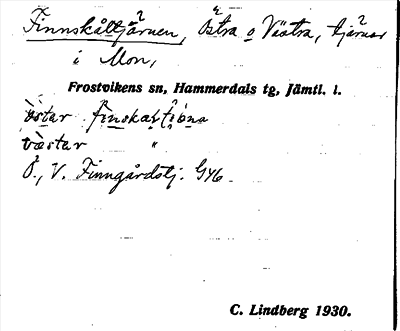 Finnskåltjärnen, Östra o Västra, tjärnar
i Mon,
Frostvikens sn, Hammerdals tg, Jämtl. l.
östar finskaltjöna
västar "
Ö., V. Finngårdstj. G46.
C. Lindberg 1930.